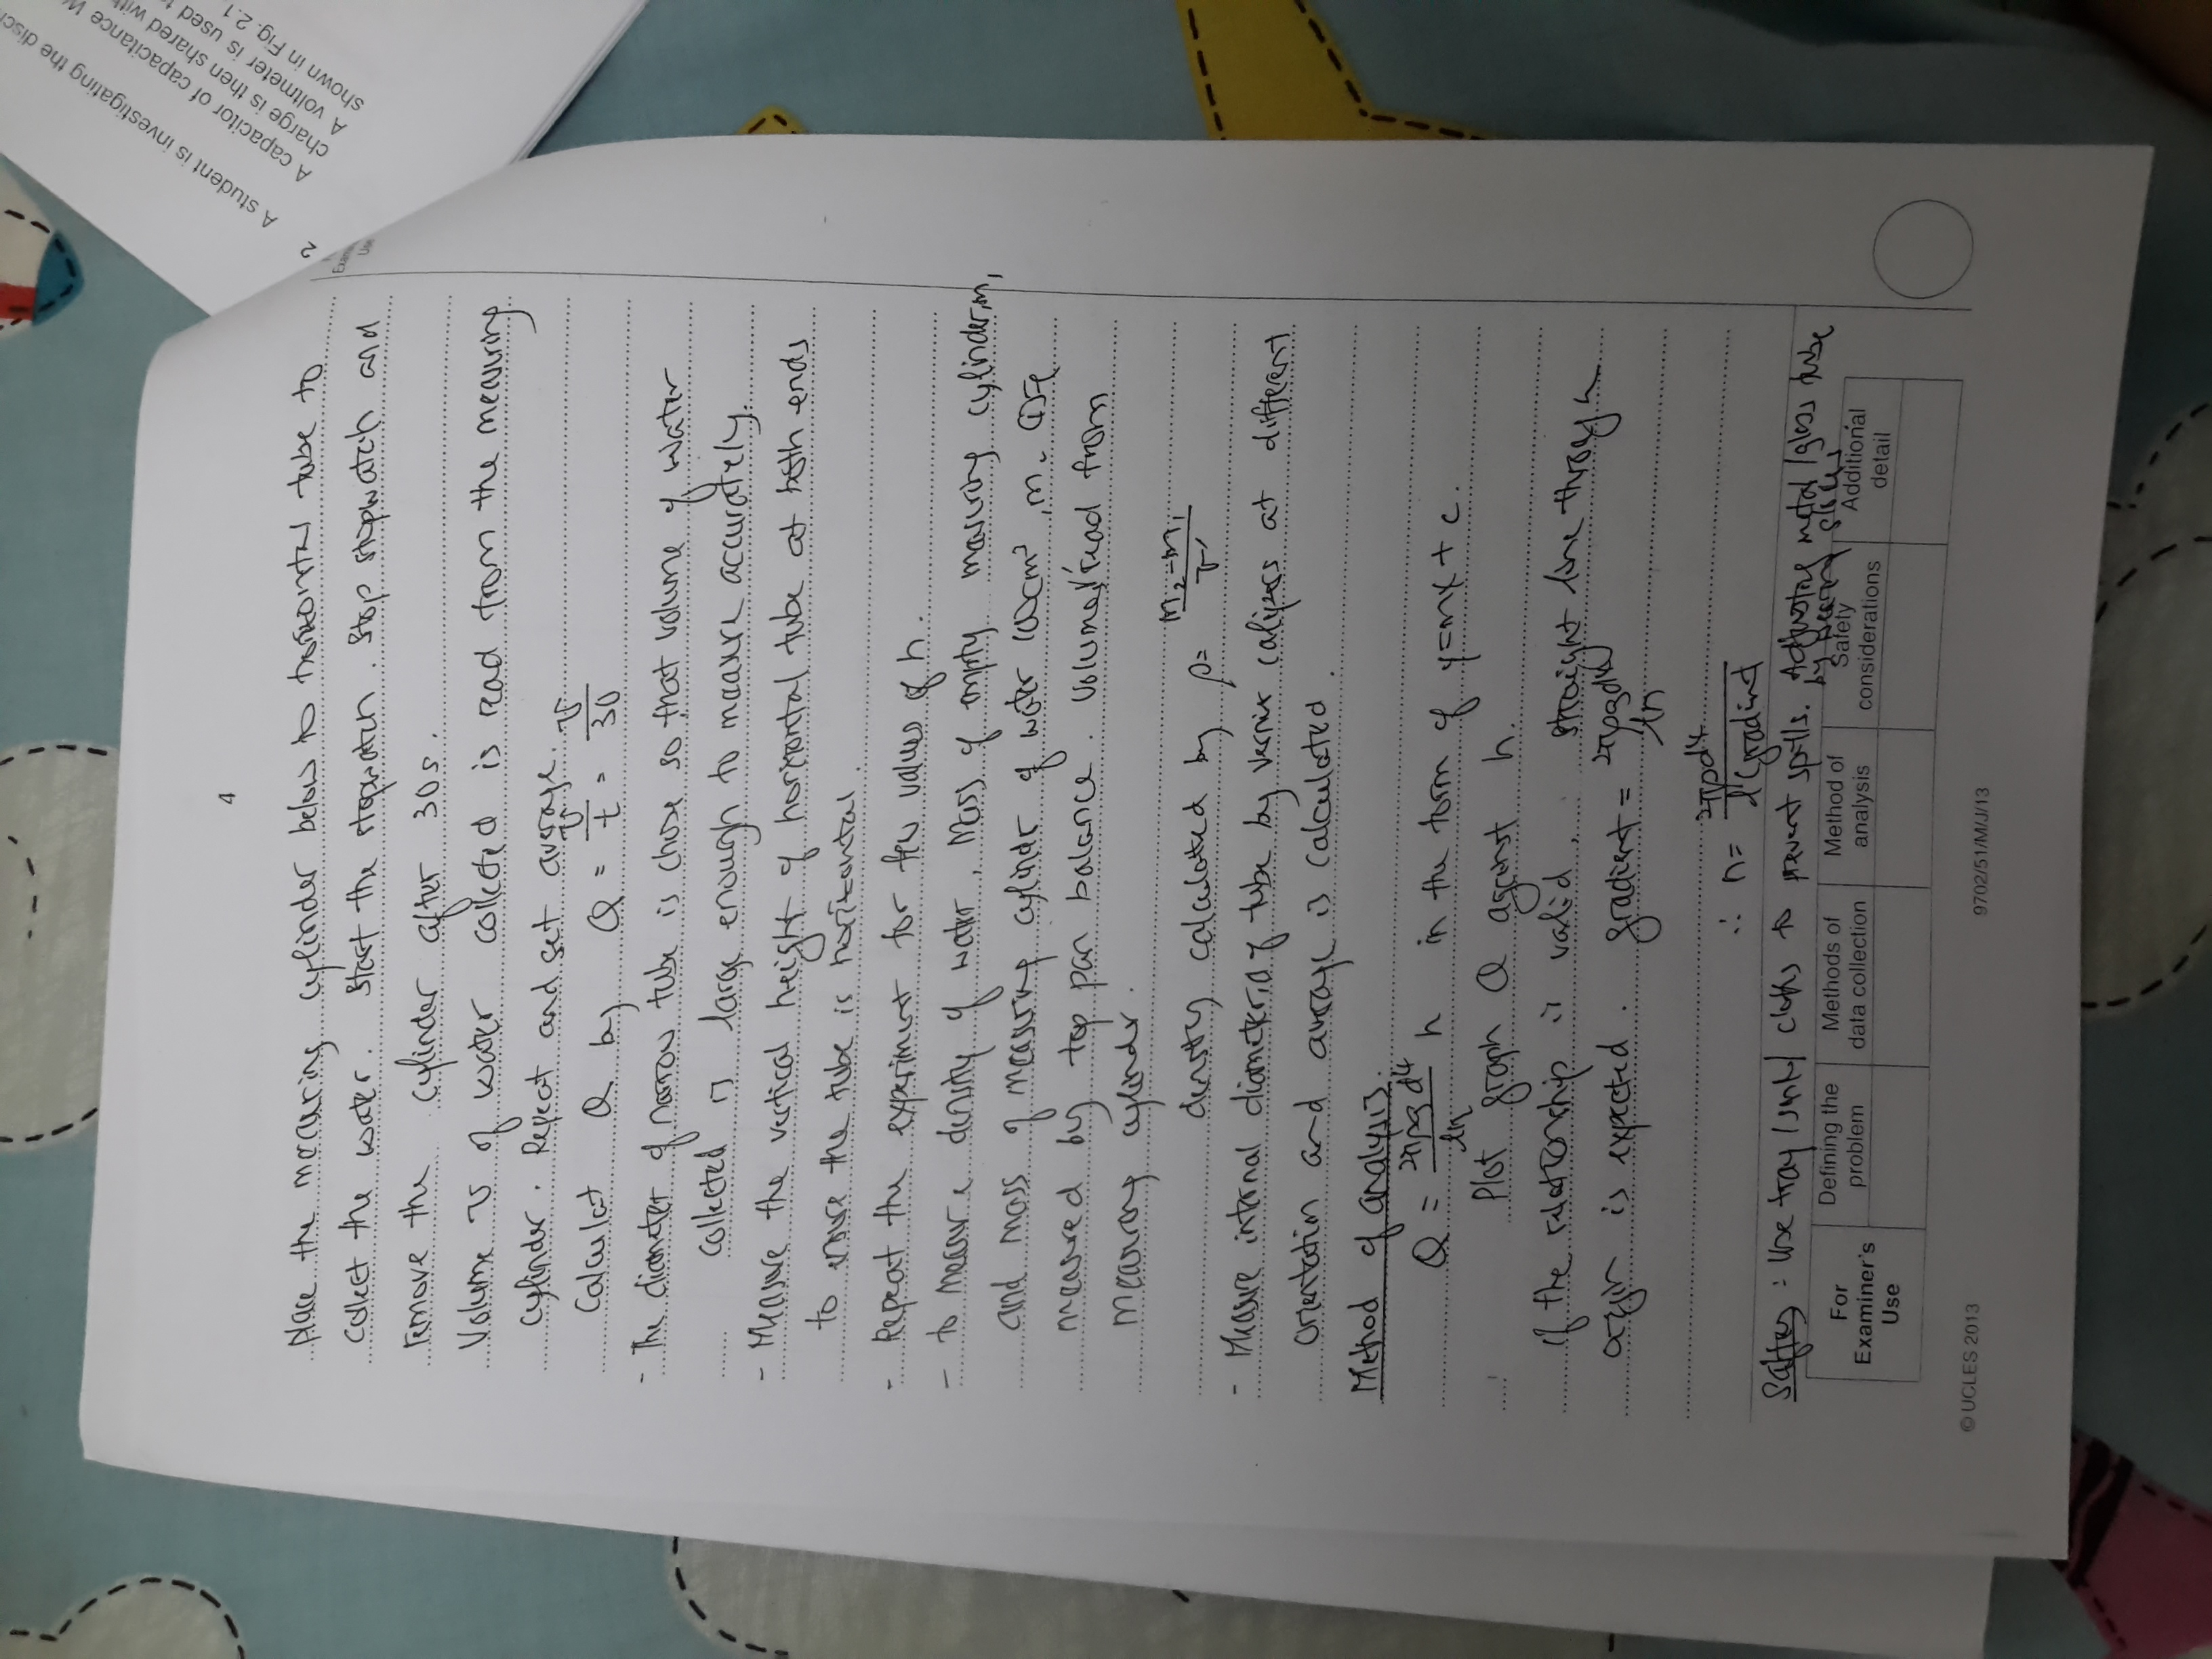 4
Place the measuring cylinder below to horizontal tube to
collect the water. Start the stopwatch. Stop stopwatch and
remove the cylinder after 30s.
Volume v of water collected is read from the measuring
cylinder. Repeat and get average.
Calculat Q by Q = v/t = v/30
- The diameter of narrow tube is chose so that volume of water
collected is large enough to measure accurately.
- Measure the vertical height of horizontal tube at both ends
to ensure the tube is horizontal.
- Repeat the experiment for few values of h.
- to measure density of water, Mass of empty measuring cylinder, m,
and mass of measuring cylinder of water 100cm³, m₂ are
measured by top pan balance. Volume read from
measuring cylinder.
density calculated by ρ = m₂-m₁/v'
- Measure internal diameter, d of tube by vernier calipers at different
orientation and average is calculated.
Method of analysis:
Q = 2πρgd⁴/ln h in the form of y=mx+c.
Plot graph Q against h.
if the relationship is valid, straight line through
origin is expected. gradient = 2πρgd⁴/ln
∴ n= 2πρd⁴/l(gradient
Saftey : Use tray / sink / cloths to prevent spills. Adjusting metal / glass tube
by wearing gloves.
For
Examiner's
Use
Defining the
problem
Methods of
data collection
Method of
analysis
Safety
considerations
Additional
detail
© UCLES 2013
9702/51/M/J/13
2
A student is investigating the
A capacitor of capacitance
charge is then shared
A voltmeter is used
shown in Fig. 2.1